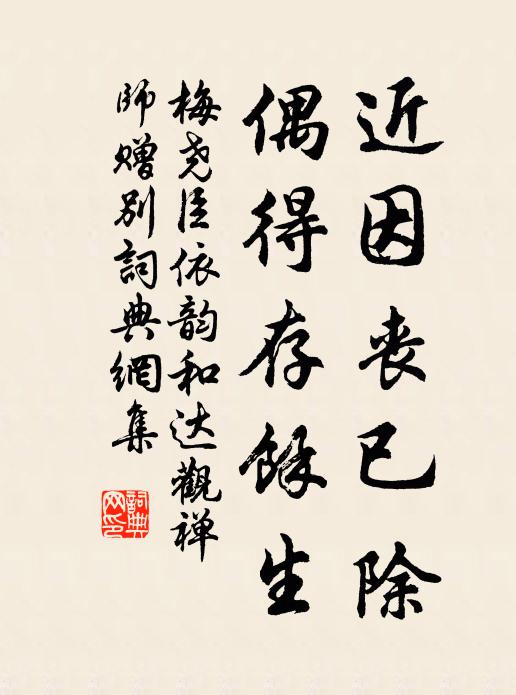 近因丧已除
偶得存餘生
梅尧臣依韵和达觀禅
师赠别詞典網集
詞典网印